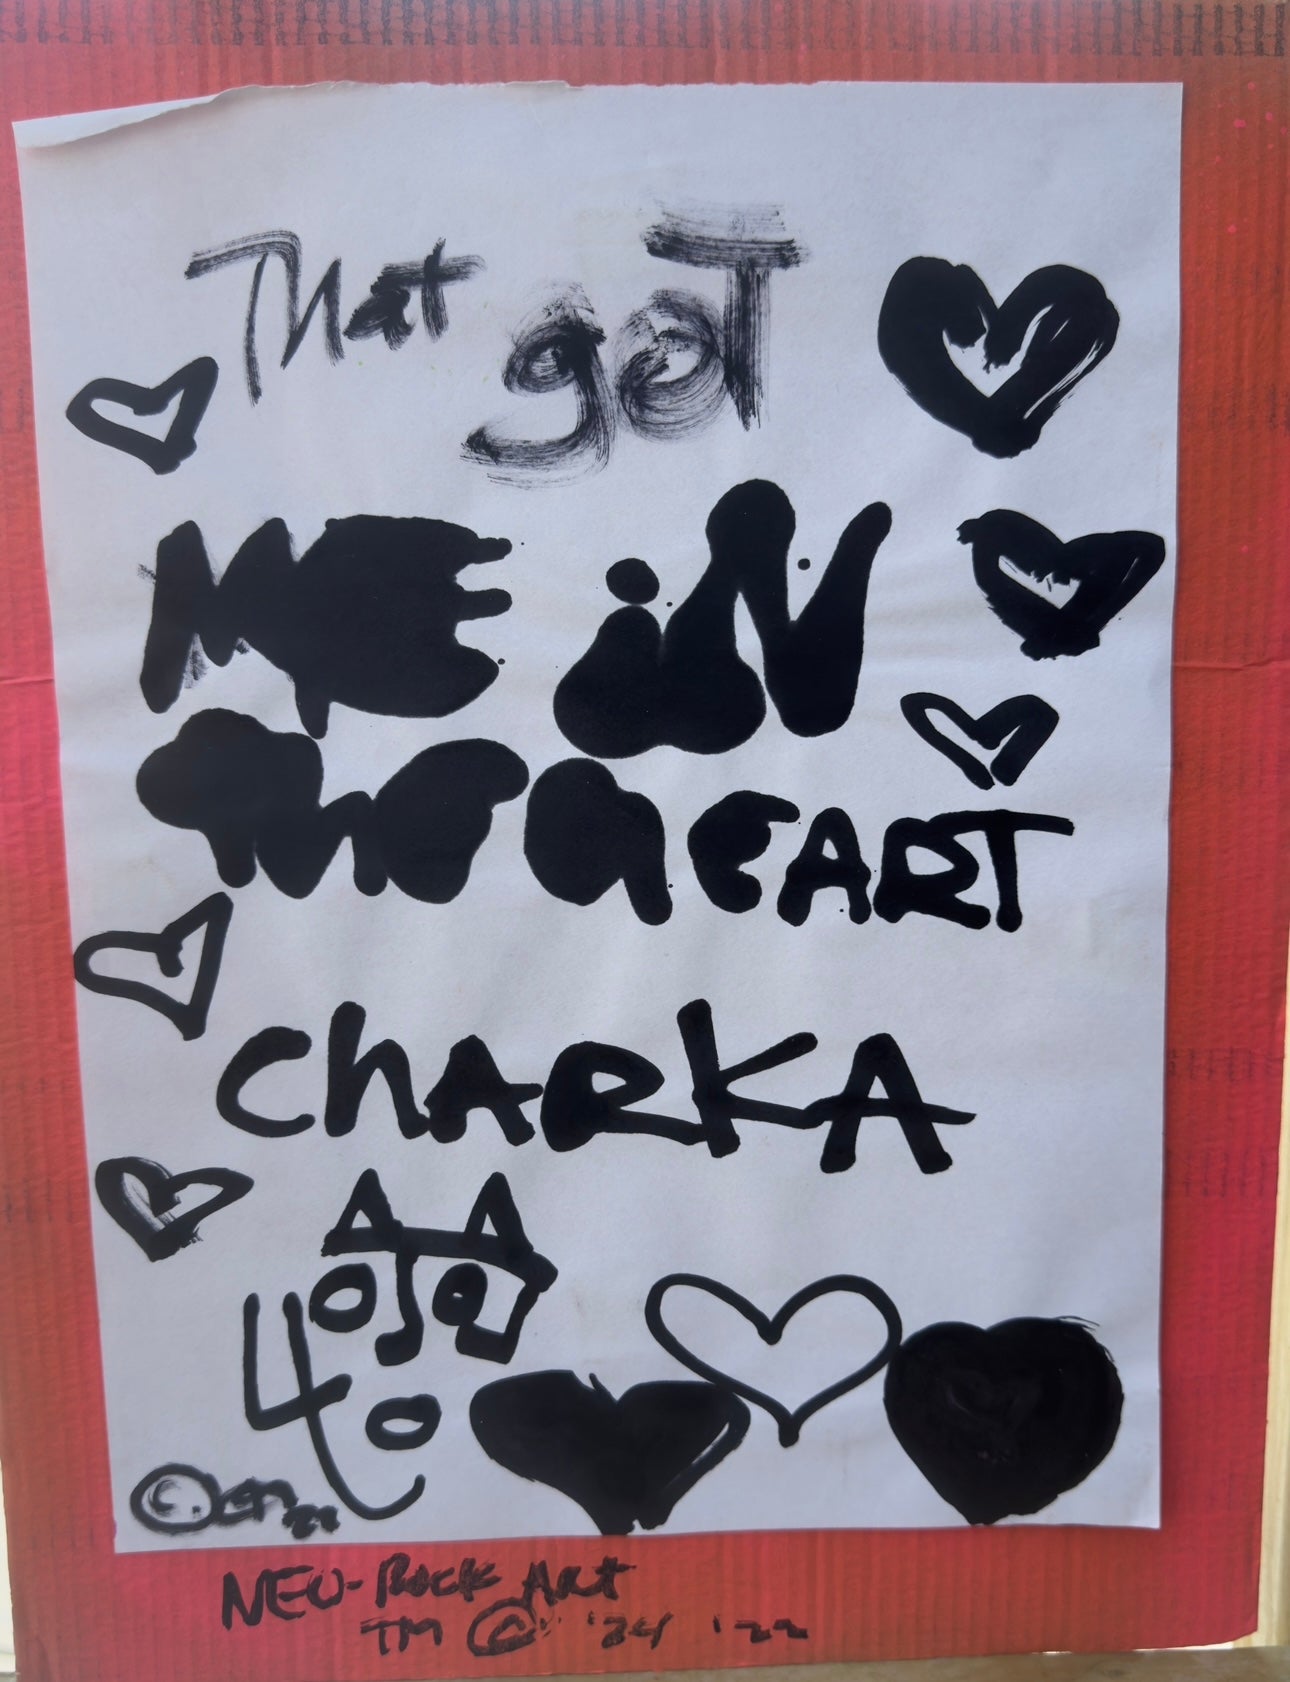 That goT
ME iN
The HEART
ChARKA
NEU-ROCK ART
TM © '24 '22